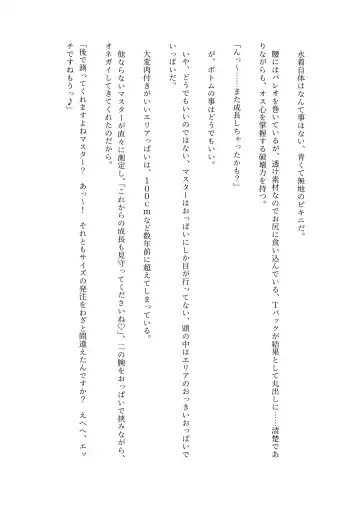 水着自体はなんて事はない、青くて無地のビキニだ。
腰にはパレオを巻いているが、透け素材なのでお尻に食い込んでいる、Tバックが結果として丸出しに……清楚であ
りながらも、オス心を掌握する破壊力を持つ。
「んっ～……また成長しちゃったかも？」
が、ボトムの事はどうでもいい。
いや、どうでもいいのではない、マスターはおっぱいにしか目が行ってない、頭の中はエリアのおっきいおっぱいで
いっぱいだ。
大変肉付きがいいエリアっぱいは、100cmなど数年前に超えてしまっている。
他ならないマスターが直々に測定し、「これからの成長も見守ってくださいね♡」、二の腕をおっぱいで挟みながら、
オネガイしてきてくれたのだから。
「後で測ってくれますよねマスター？　あっ～！　それともサイズの発注をわざと間違えたんですか？　えへへ、エッ
チですねもうっ♪」